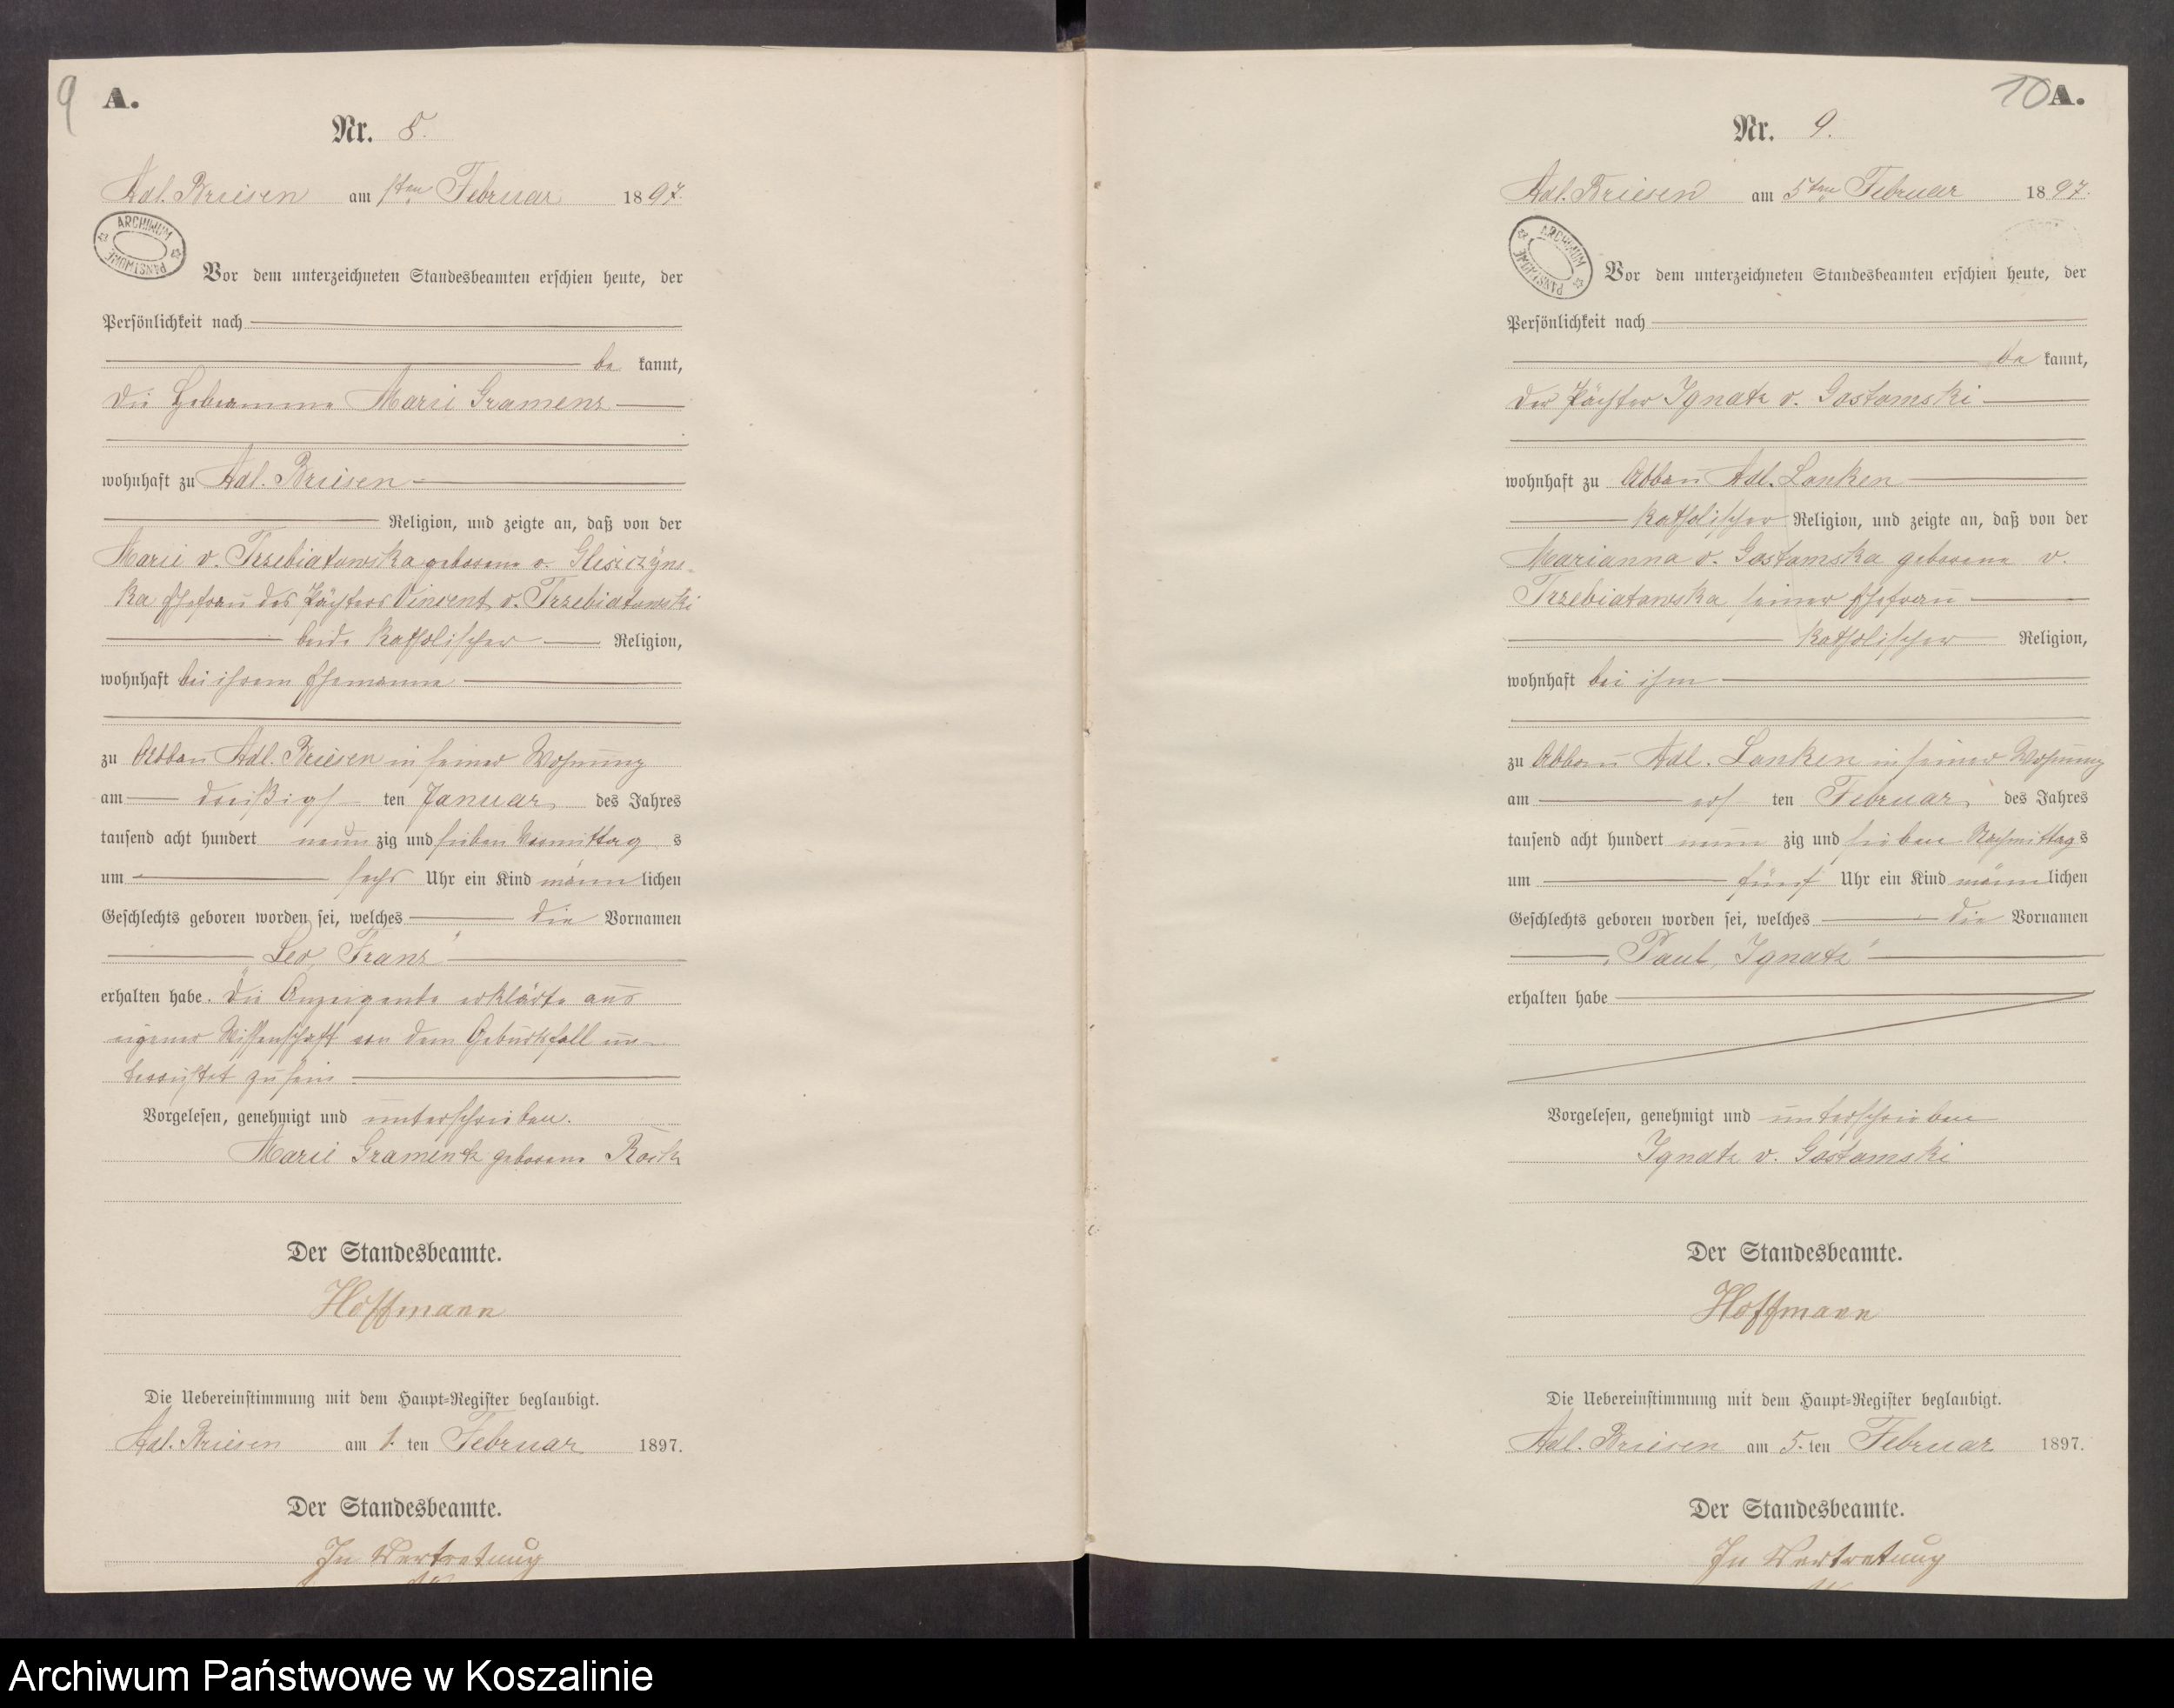 9
A.
Nr. 8.
Adl. Briesen am 1ten Februar 1897.
ARCHIWUM PAŃSTWOWE
Vor dem unterzeichneten Standesbeamten erschien heute, der
Persönlichkeit nach
be kannt,
die Hebeamme Marie Gramenz
wohnhaft zu Adl. Briesen
Religion, und zeigte an, daß von der
Marie v. Trzebiatowska geborene v. Gliszczyns-
ka Ehefrau des Pächters Vincent v. Trzebiatowski
beide katholischer Religion,
wohnhaft bei ihrem Ehemanne
zu Abbau Adl. Briesen in seiner Wohnung
am dreißigs ten Januar des Jahres
tausend acht hundert neun zig und sieben Vormittag s
um sechs Uhr ein Kind männ lichen
Geschlechts geboren worden sei, welches die Vornamen
„Leo, Franz"
erhalten habe. Die Anzeigende erklärte aus
eigener Wissenschaft von dem Geburtsfall un-
terrichtet zu sein.
Vorgelesen, genehmigt und unterschrieben.
Marie Gramentz geborene
Der Standesbeamte.
Hoffmann
Die Uebereinstimmung mit dem Haupt-Register beglaubigt.
Adl. Briesen am 1. ten Februar 1897.
Der Standesbeamte.
In Vertretung
10
A.
Nr. 9.
Adl. Briesen am 5ten Februar 1897.
ARCHIWUM PAŃSTWOWE
Vor dem unterzeichneten Standesbeamten erschien heute, der
Persönlichkeit nach
be kannt,
der Pächter Ignatz v. Gostomski
wohnhaft zu Abbau Adl. Lonken
katholischer Religion, und zeigte an, daß von der
Marianna v. Gostomska geborene v.
Trzebiatowska seiner Ehefrau
katholischer Religion,
wohnhaft bei ihm
zu Abbau Adl. Lonken in seiner Wohnung
am ers ten Februar des Jahres
tausend acht hundert neun zig und sieben Nachmittag s
um fünf Uhr ein Kind männ lichen
Geschlechts geboren worden sei, welches die Vornamen
„Paul, Ignatz"
erhalten habe
Vorgelesen, genehmigt und unterschrieben
Ignatz v. Gostomski
Der Standesbeamte.
Hoffmann
Die Uebereinstimmung mit dem Haupt-Register beglaubigt.
Adl. Briesen am 5. ten Februar 1897.
Der Standesbeamte.
In Vertretung
Archiwum Państwowe w Koszalinie